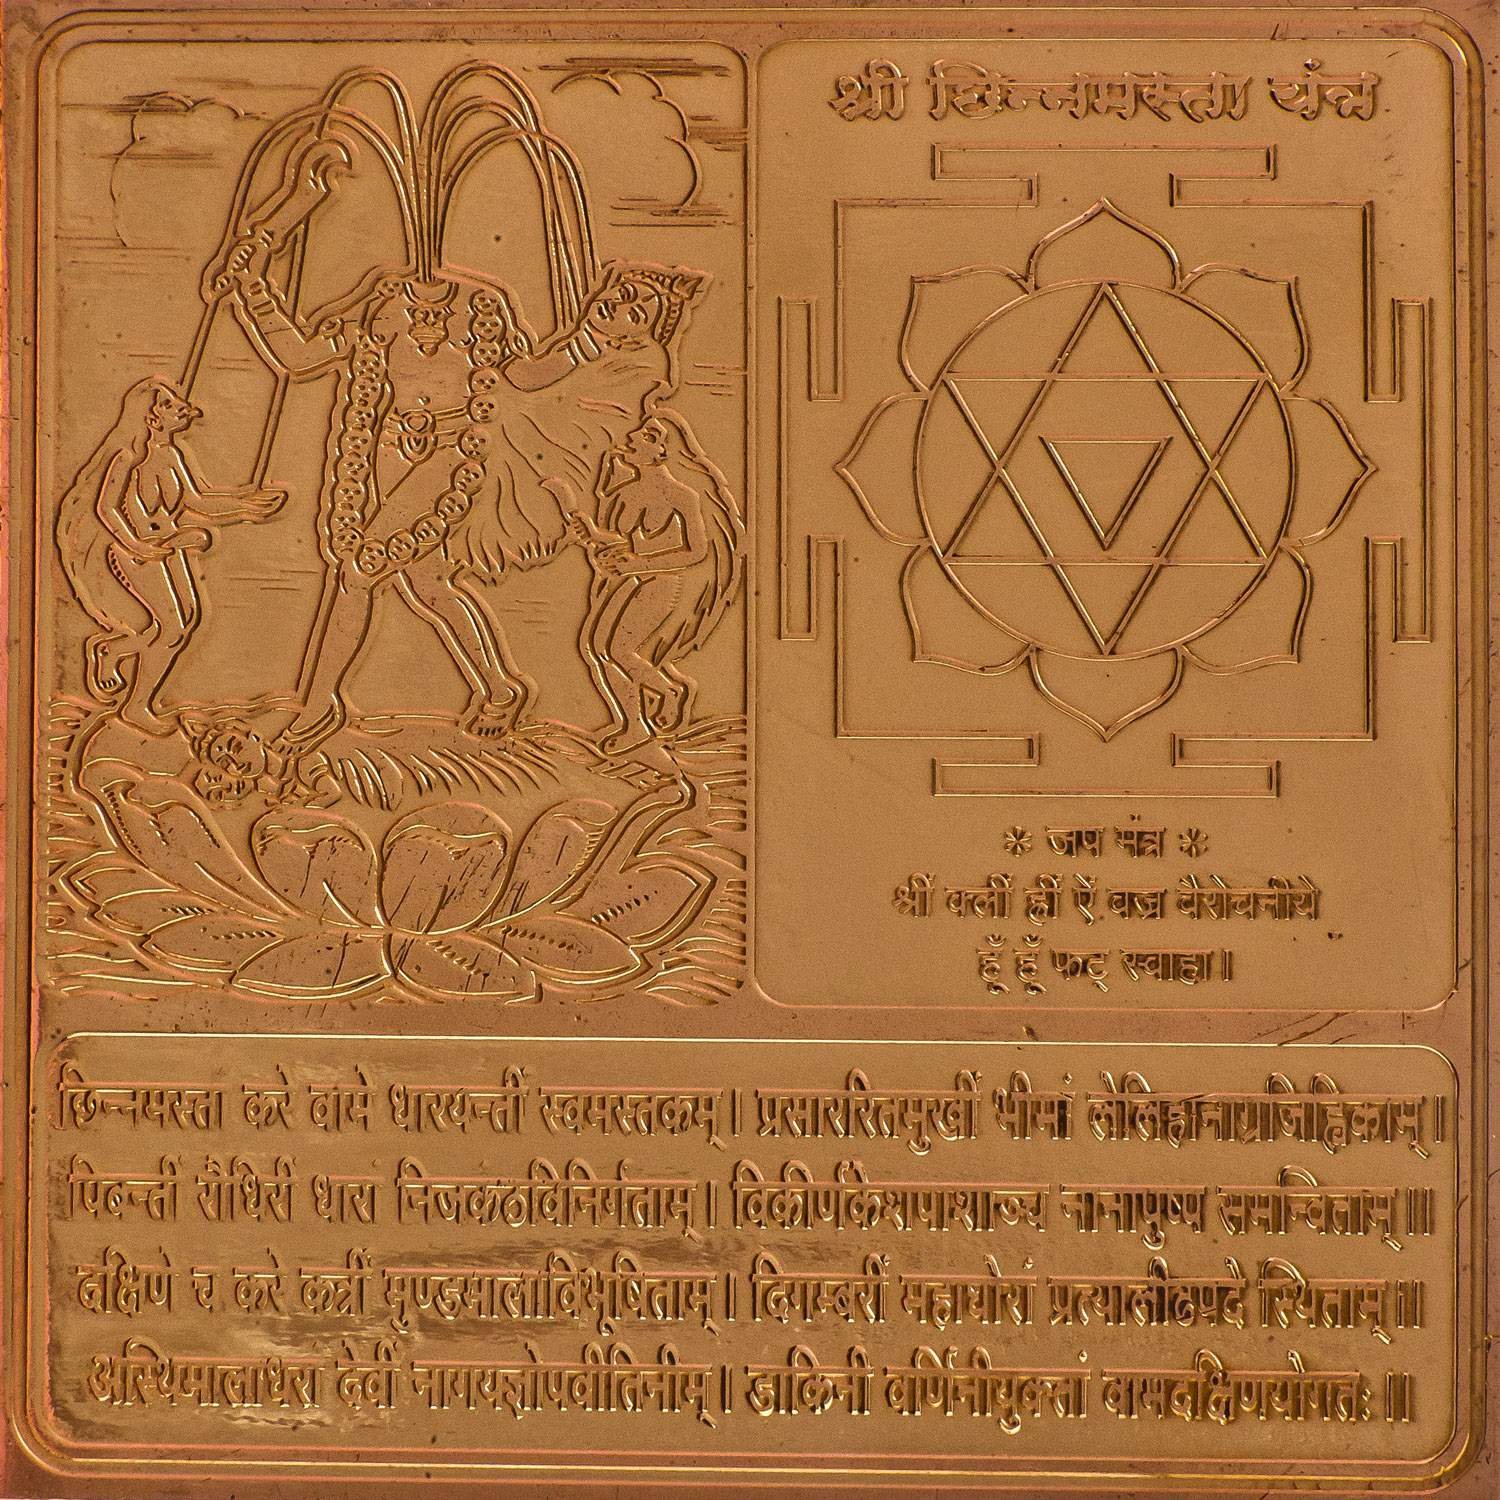 श्री छिन्नमस्ता यंत्र
* जप मंत्र *
श्रीं क्लीं ह्रीं ऐं वज्र वैरोचनीये
हूँ हूँ फट् स्वाहा।
छिन्नमस्ता करे वामे धारयन्तीं स्वमस्तकम्। प्रसाररितमुखीं भीमां लेलिहानाग्रजिह्विकाम्।
पिबन्तीं रौधिरीं धारा निजकठविनिर्गताम्। विकीर्णकेशपाशाञ्च नानापुष्प समन्विताम्॥
दक्षिणे च करे कर्त्रीं मुण्डमालाविभूषिताम्। दिगम्बरीं महाघोरां प्रत्यालीढपदे स्थिताम्॥
अस्थिमालाधरा देवीं नागयज्ञोपवीतिनीम्। डाकिनी वर्णिनीयुक्तां वामदक्षिणयोगतः॥